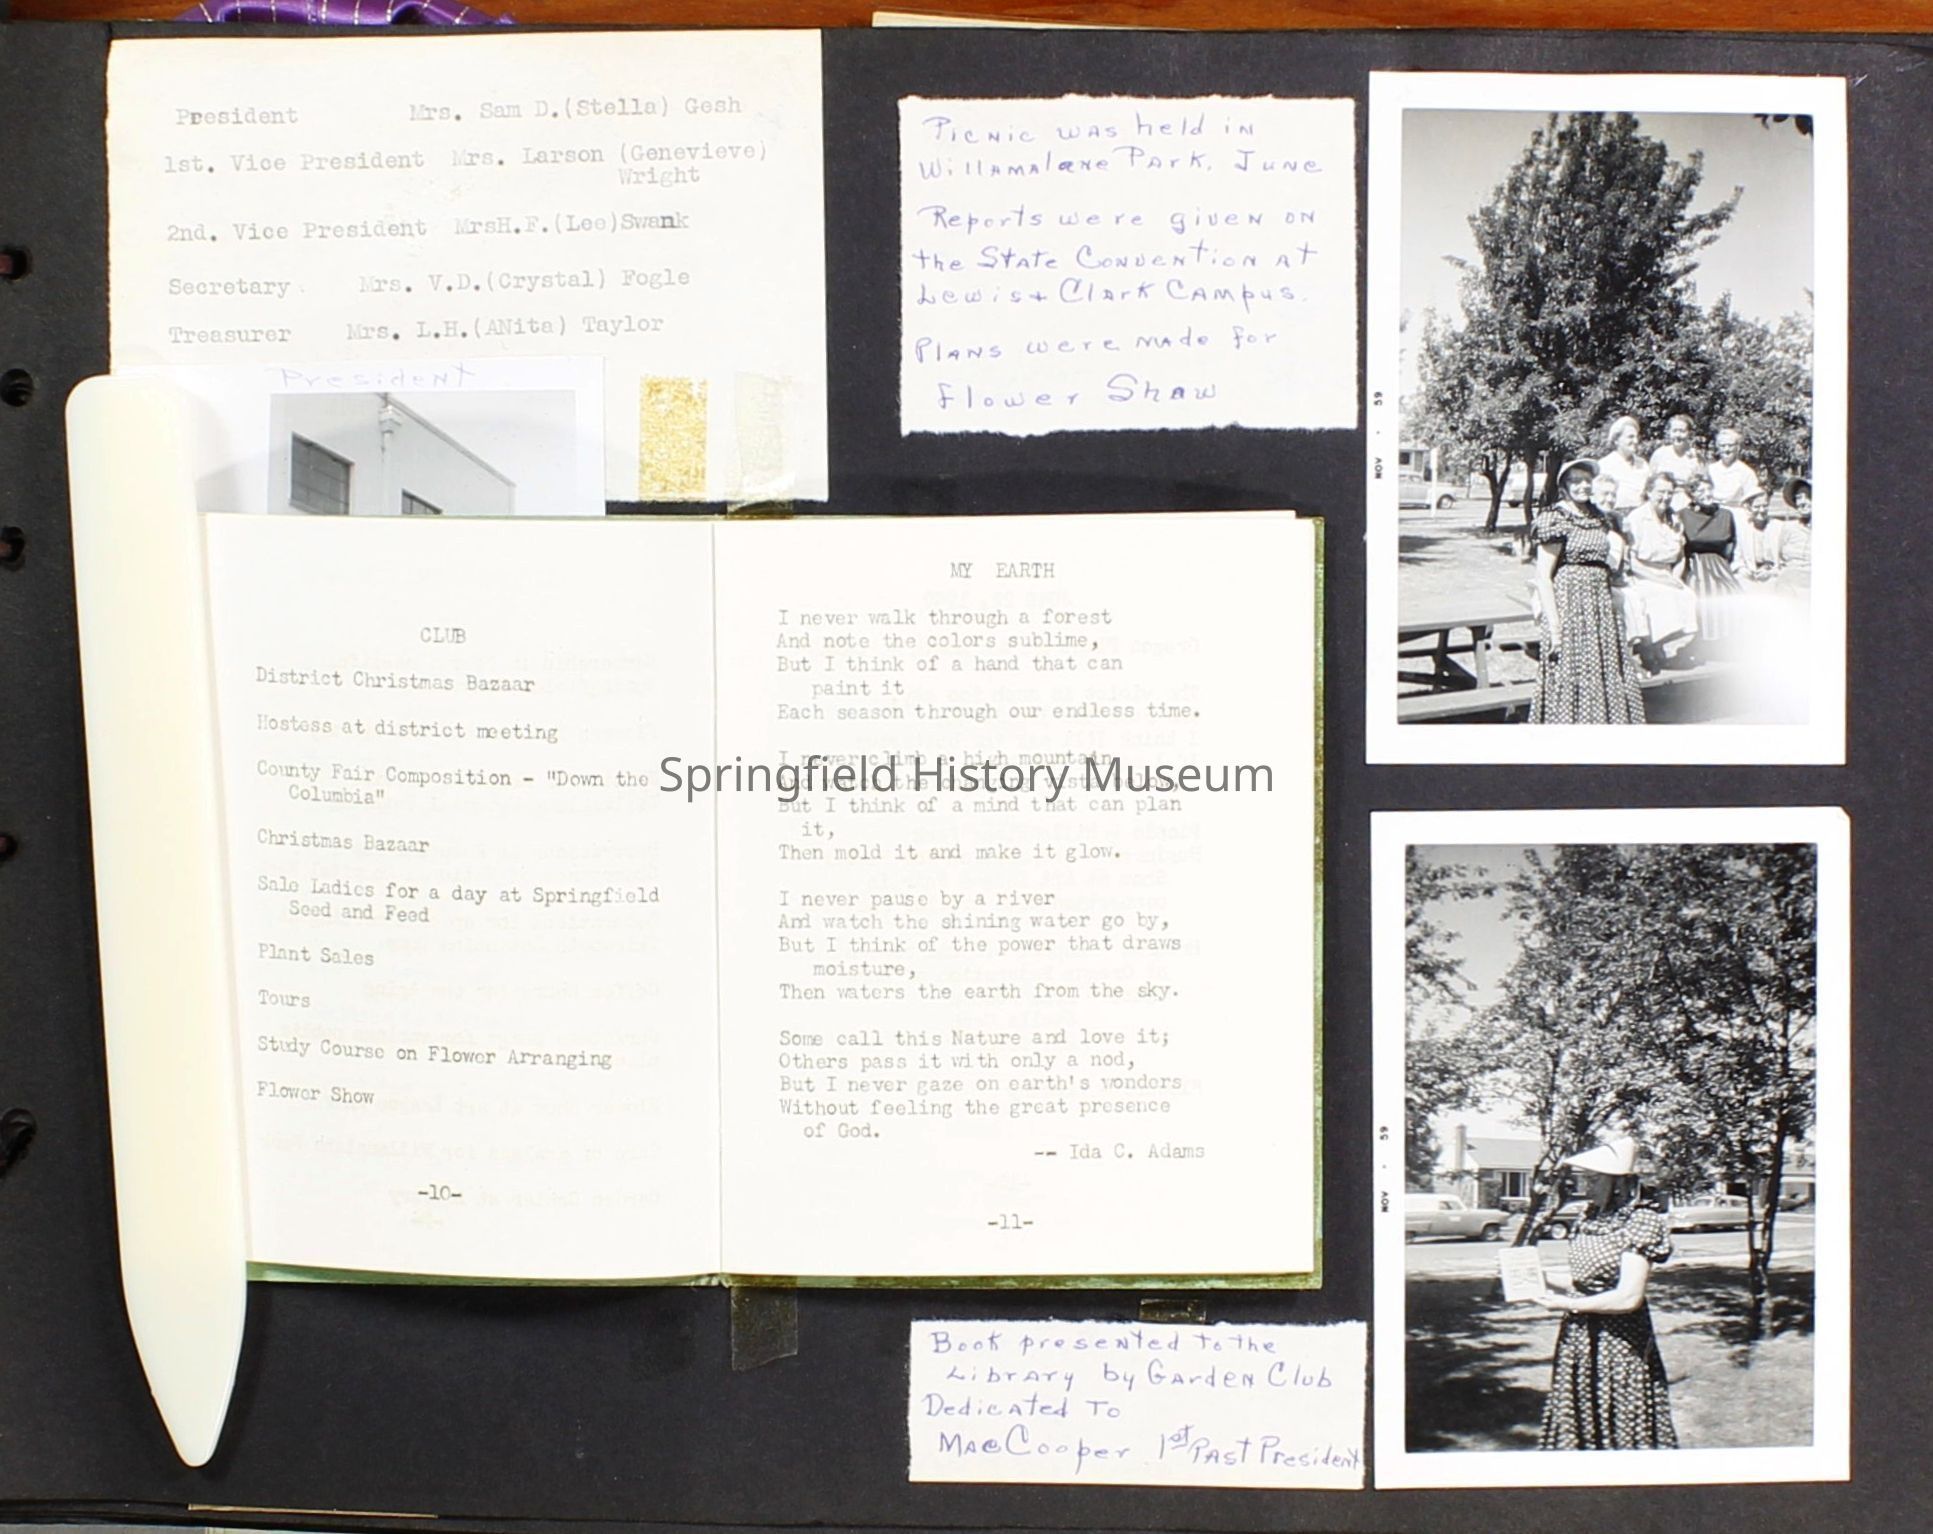 President Mrs. Sam D.(Stella) Gesh
1st. Vice President Mrs. Larson (Genevieve)
Wright
2nd. Vice President MrsH.F.(Lee)Swank
Secretary. Mrs. V.D.(Crystal) Fogle
Treasurer Mrs. L.H.(ANita) Taylor
President
CLUB
District Christmas Bazaar
Hostess at district meeting
County Fair Composition - "Down the
Columbia"
Christmas Bazaar
Sale Ladies for a day at Springfield
Seed and Feed
Plant Sales
Tours
Study Course on Flower Arranging
Flower Show
-10-
MY EARTH
I never walk through a forest
And note the colors sublime,
But I think of a hand that can
paint it
Each season through our endless time.
I never climb a high mountain
And watch the changing vista below,
But I think of a mind that can plan
it,
Then mold it and make it glow.
I never pause by a river
And watch the shining water go by,
But I think of the power that draws
moisture,
Then waters the earth from the sky.
Some call this Nature and love it;
Others pass it with only a nod,
But I never gaze on earth's wonders
Without feeling the great presence
of God.
-- Ida C. Adams
-11-
Springfield History Museum
Picnic was held in
Willamalane Park, June
Reports were given on
the State Convention at
Lewis + Clark Campus.
Plans were made for
Flower Show
NOV . 59
Book presented to the
Library by Garden Club
Dedicated To
Mae Cooper 1st Past President
NOV . 59